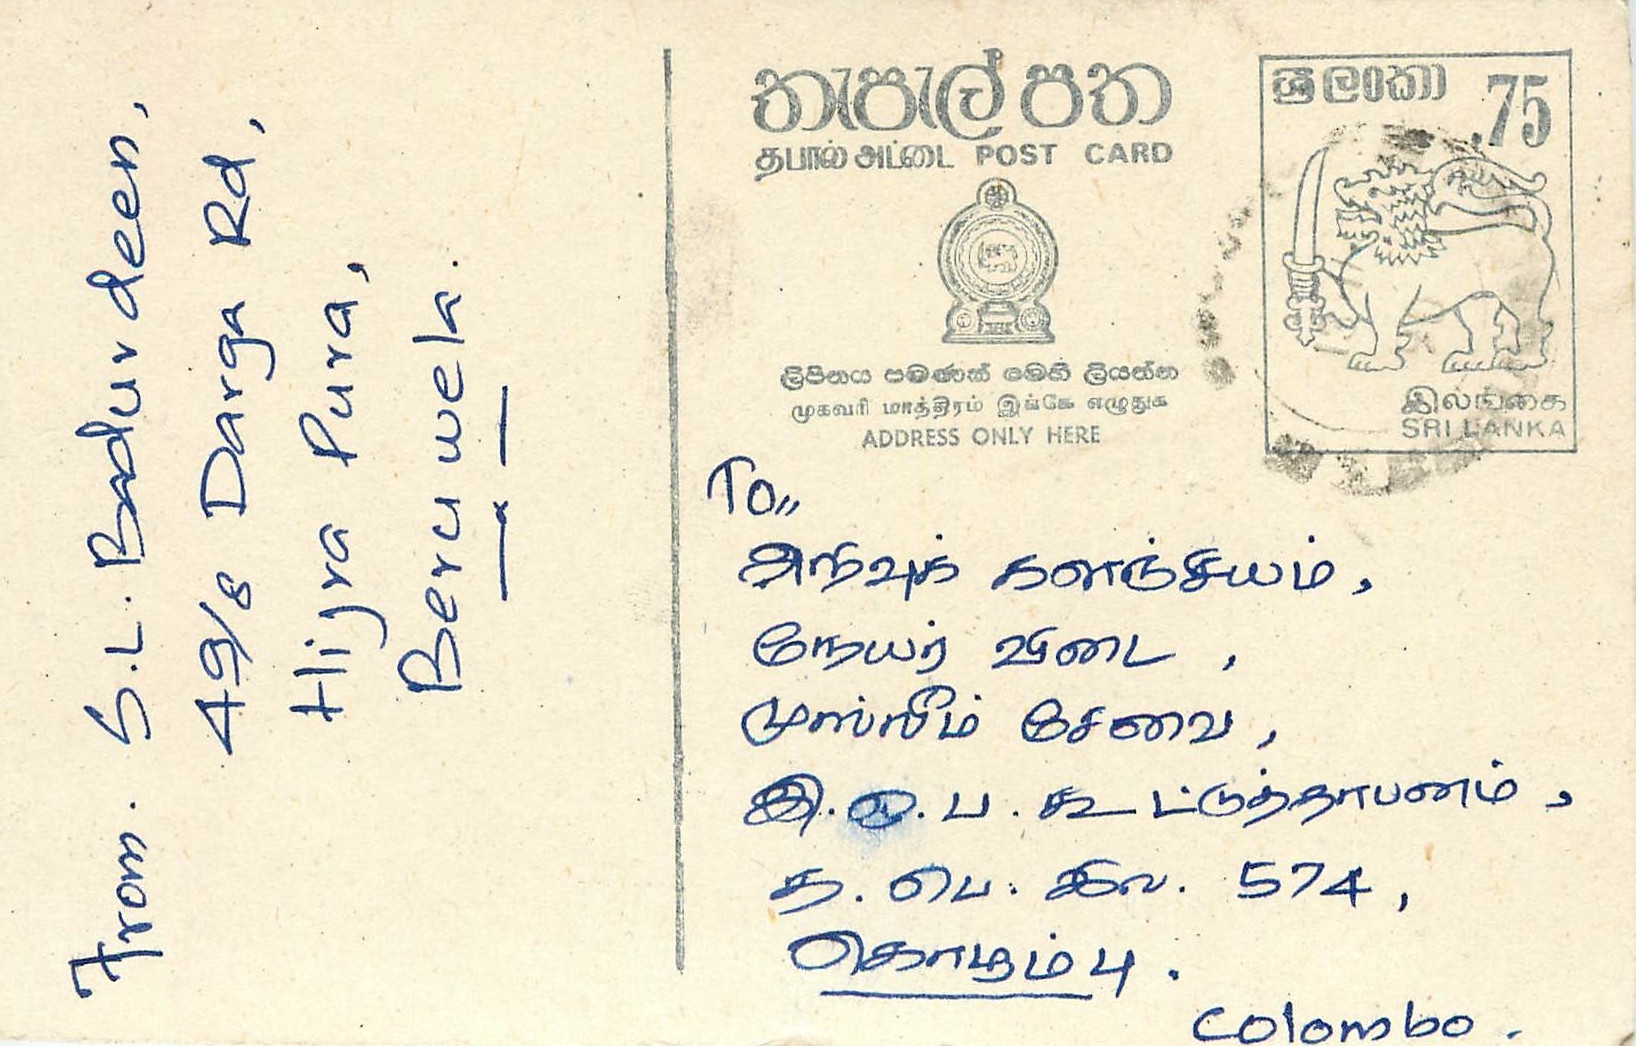 From. S.L. Badurdeen,
49/8 Darga Rd,
Hijra Pura,
Beruwela.
තැපැල් පත
தபால் அட்டை POST CARD
ලිපිනය පමණක් මෙහි ලියන්න
முகவரி மாத்திரம் இங்கே எழுதுக
ADDRESS ONLY HERE
ශ්‍රී ලංකා .75
இலங்கை
SRI LANKA
To,,
அறிவுக் களஞ்சியம்,
நேயர் விடை,
முஸ்லீம் சேவை,
இ.ஒ.ப. கூட்டுத்தாபனம்,
த.பெ. இல. 574,
கொழும்பு.
Colombo.